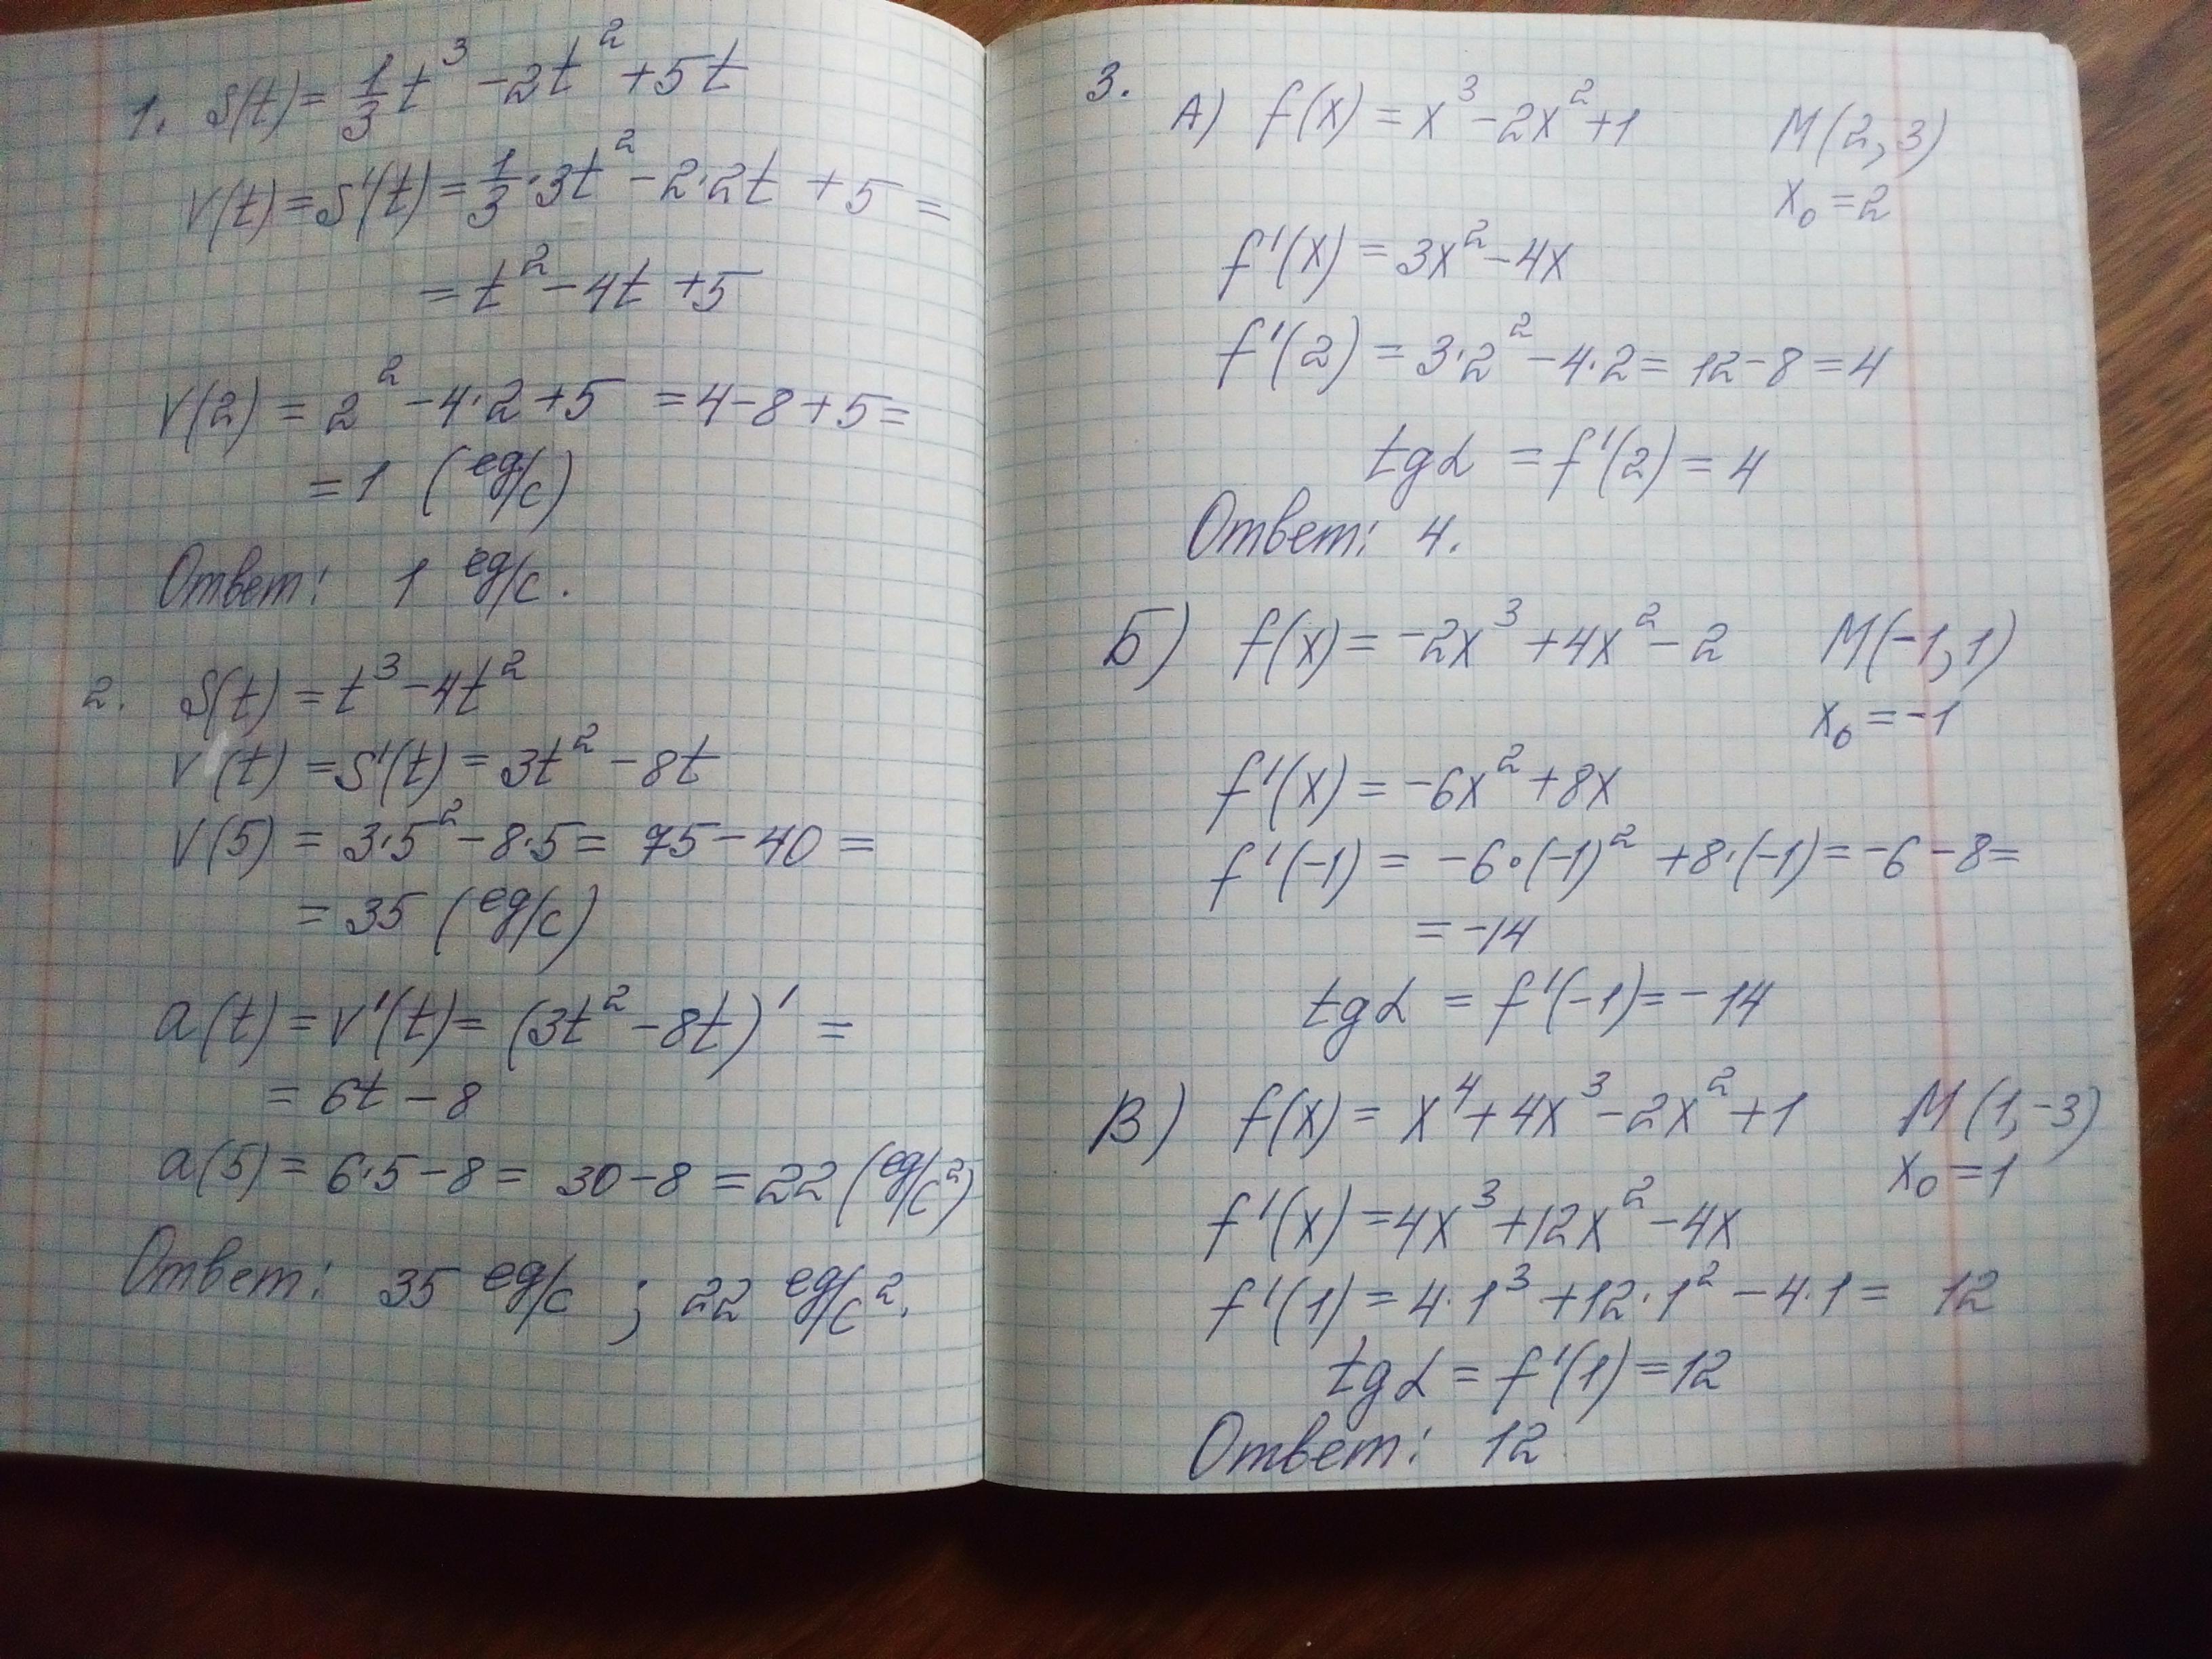 1. S(t) = 1/3 t³ - 2t² + 5t
V(t) = S'(t) = 1/3 · 3t² - 2·2t + 5 =
= t² - 4t + 5
V(2) = 2² - 4·2 + 5 = 4 - 8 + 5 =
= 1 (ед/с)
Ответ: 1 ед/с.
2. S(t) = t³ - 4t²
V(t) = S'(t) = 3t² - 8t
V(5) = 3·5² - 8·5 = 75 - 40 =
= 35 (ед/с)
a(t) = V'(t) = (3t² - 8t)' =
= 6t - 8
a(5) = 6·5 - 8 = 30 - 8 = 22 (ед/с²)
Ответ: 35 ед/с ; 22 ед/с².
3.
А) f(x) = x³ - 2x² + 1 M(2, 3)
x₀ = 2
f'(x) = 3x² - 4x
f'(2) = 3·2² - 4·2 = 12 - 8 = 4
tg α = f'(2) = 4
Ответ: 4.
Б) f(x) = -2x³ + 4x² - 2 M(-1, 1)
x₀ = -1
f'(x) = -6x² + 8x
f'(-1) = -6·(-1)² + 8·(-1) = -6 - 8 =
= -14
tg α = f'(-1) = -14
В) f(x) = x⁴ + 4x³ - 2x² + 1 M(1, -3)
x₀ = 1
f'(x) = 4x³ + 12x² - 4x
f'(1) = 4·1³ + 12·1² - 4·1 = 12
tg α = f'(1) = 12
Ответ: 12